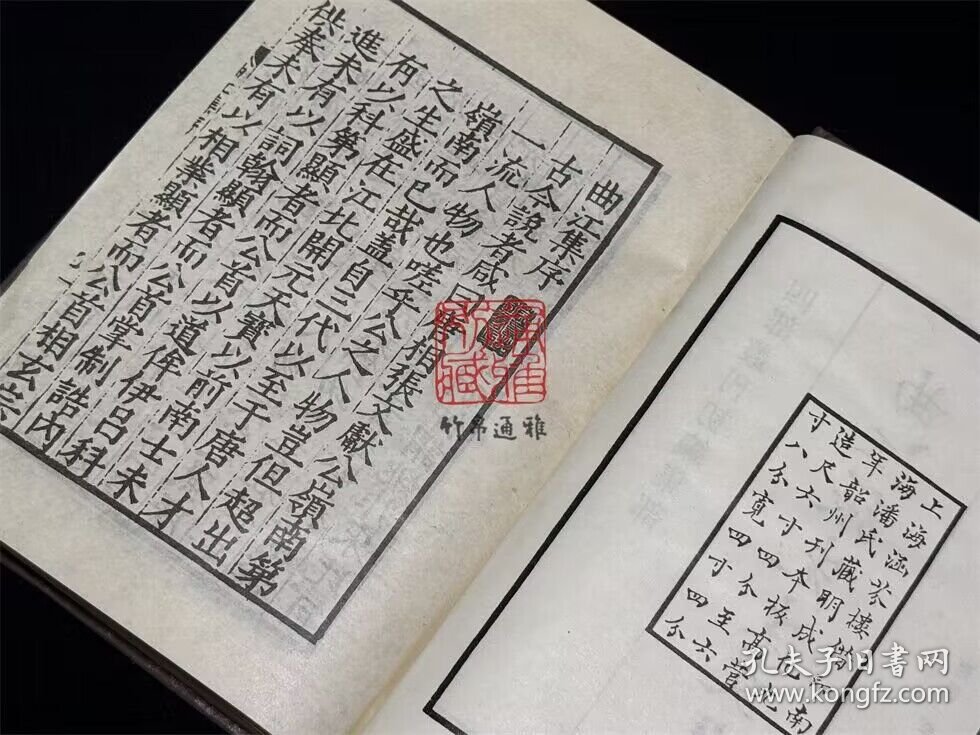 曲江集序
古今說者咸曰唐相張文獻公嶺南第
一流人物也嗟乎公之人物豈但超出
嶺南而已哉蓋自三代以至于唐人才
之生盛在江北開元天寶以前南士未
有以科第顯者而公首以道侔伊呂科
進未有以詞翰顯者而公首掌制誥內
供奉未有以相業顯者而公首相玄宗
上海涵芬樓南
海潘氏藏明成化九
年韶州刊本板高營
造尺六寸四分至六
寸八分寬四寸四分
竹帛通雅
孔夫子旧书网
www.kongfz.com